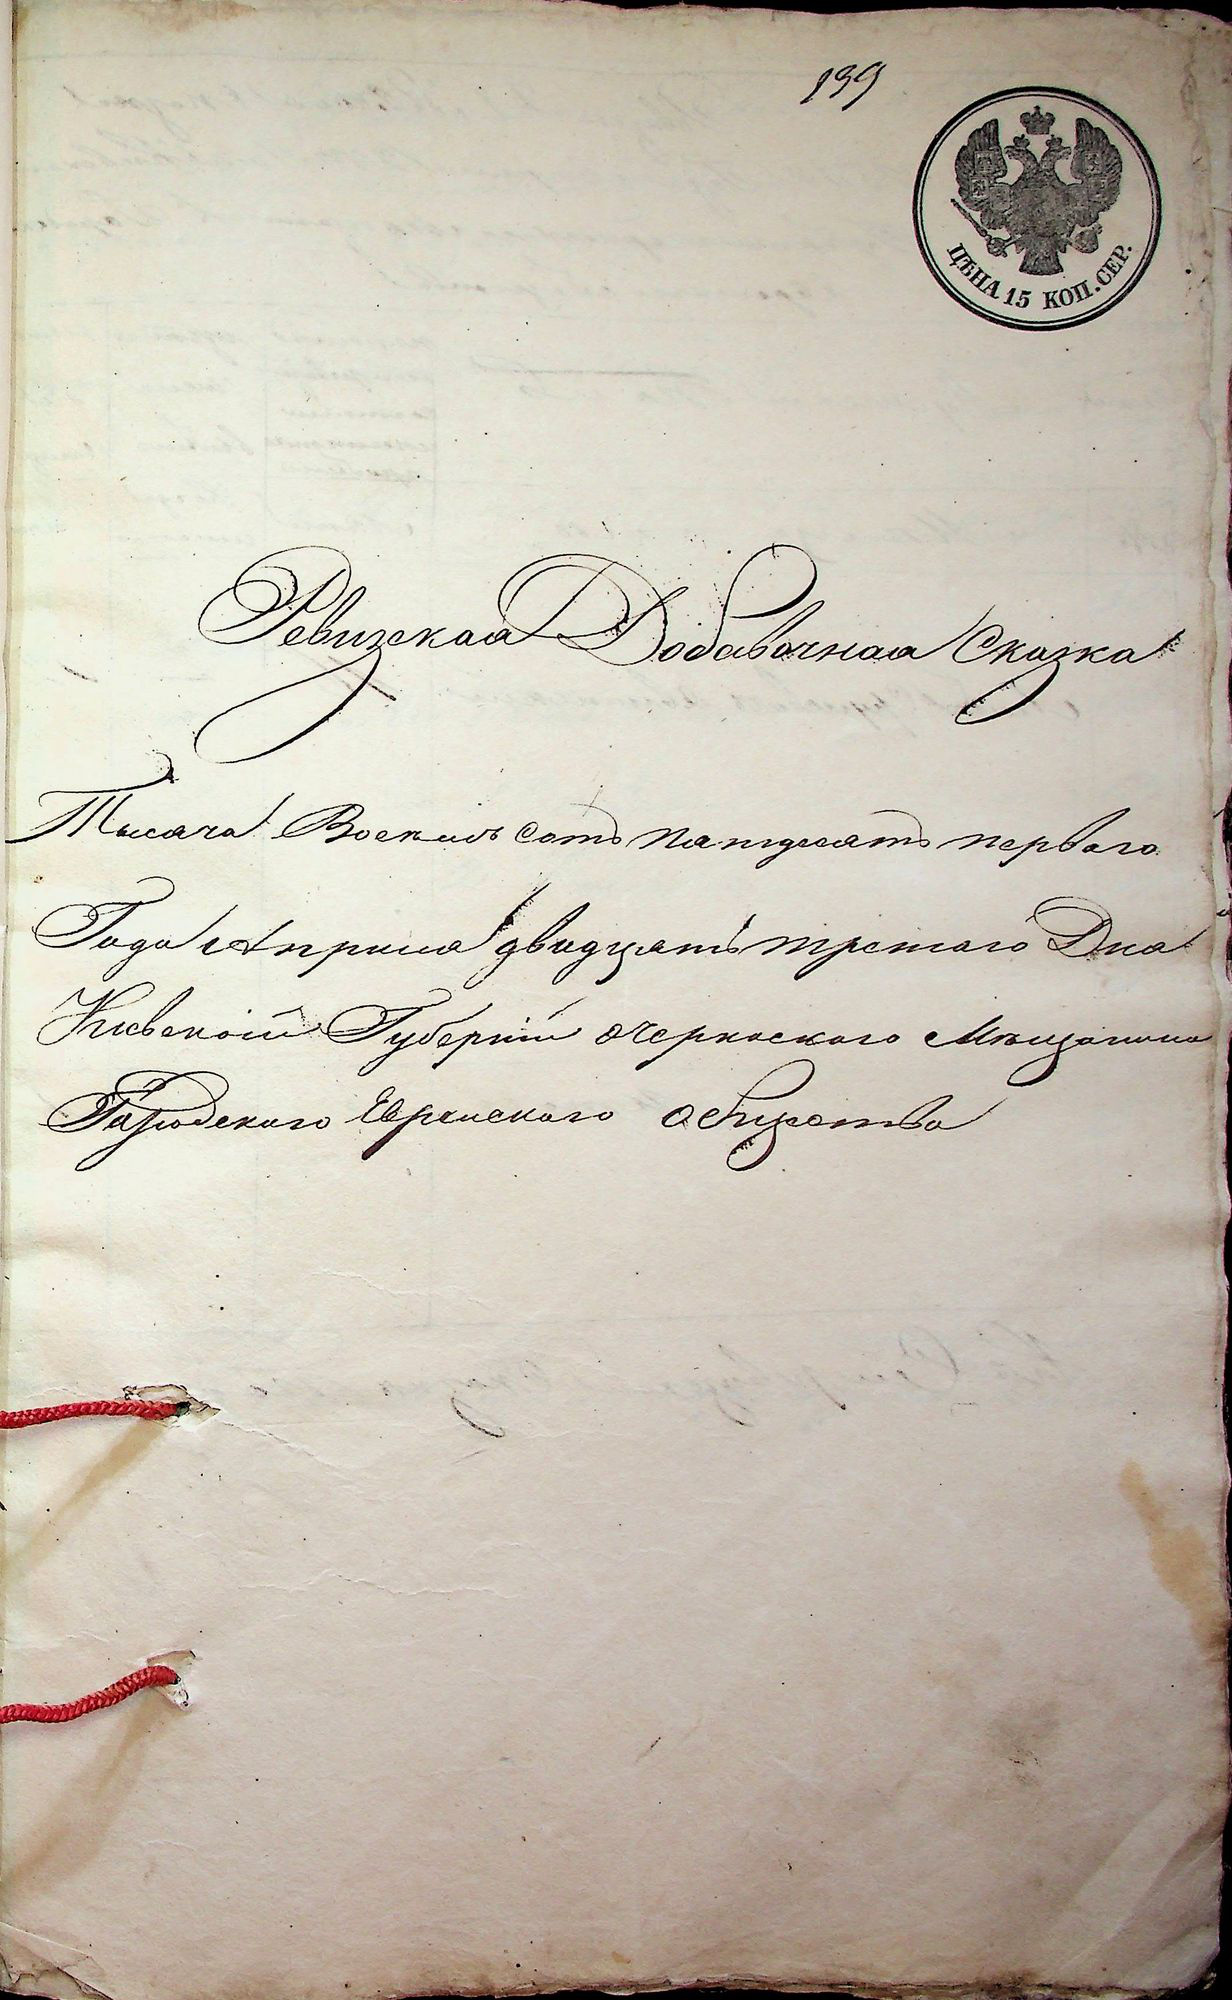 199
ЦѢНА 15 КОП. СЕР.
Ревизская Добавочная Сказка
Тысяча Восемь сотъ пятдесятъ первого
Года Апреля двадцать третого Дня
Киевской Губернiи Черкаского Мѣщанина
Городского Еврейского общества